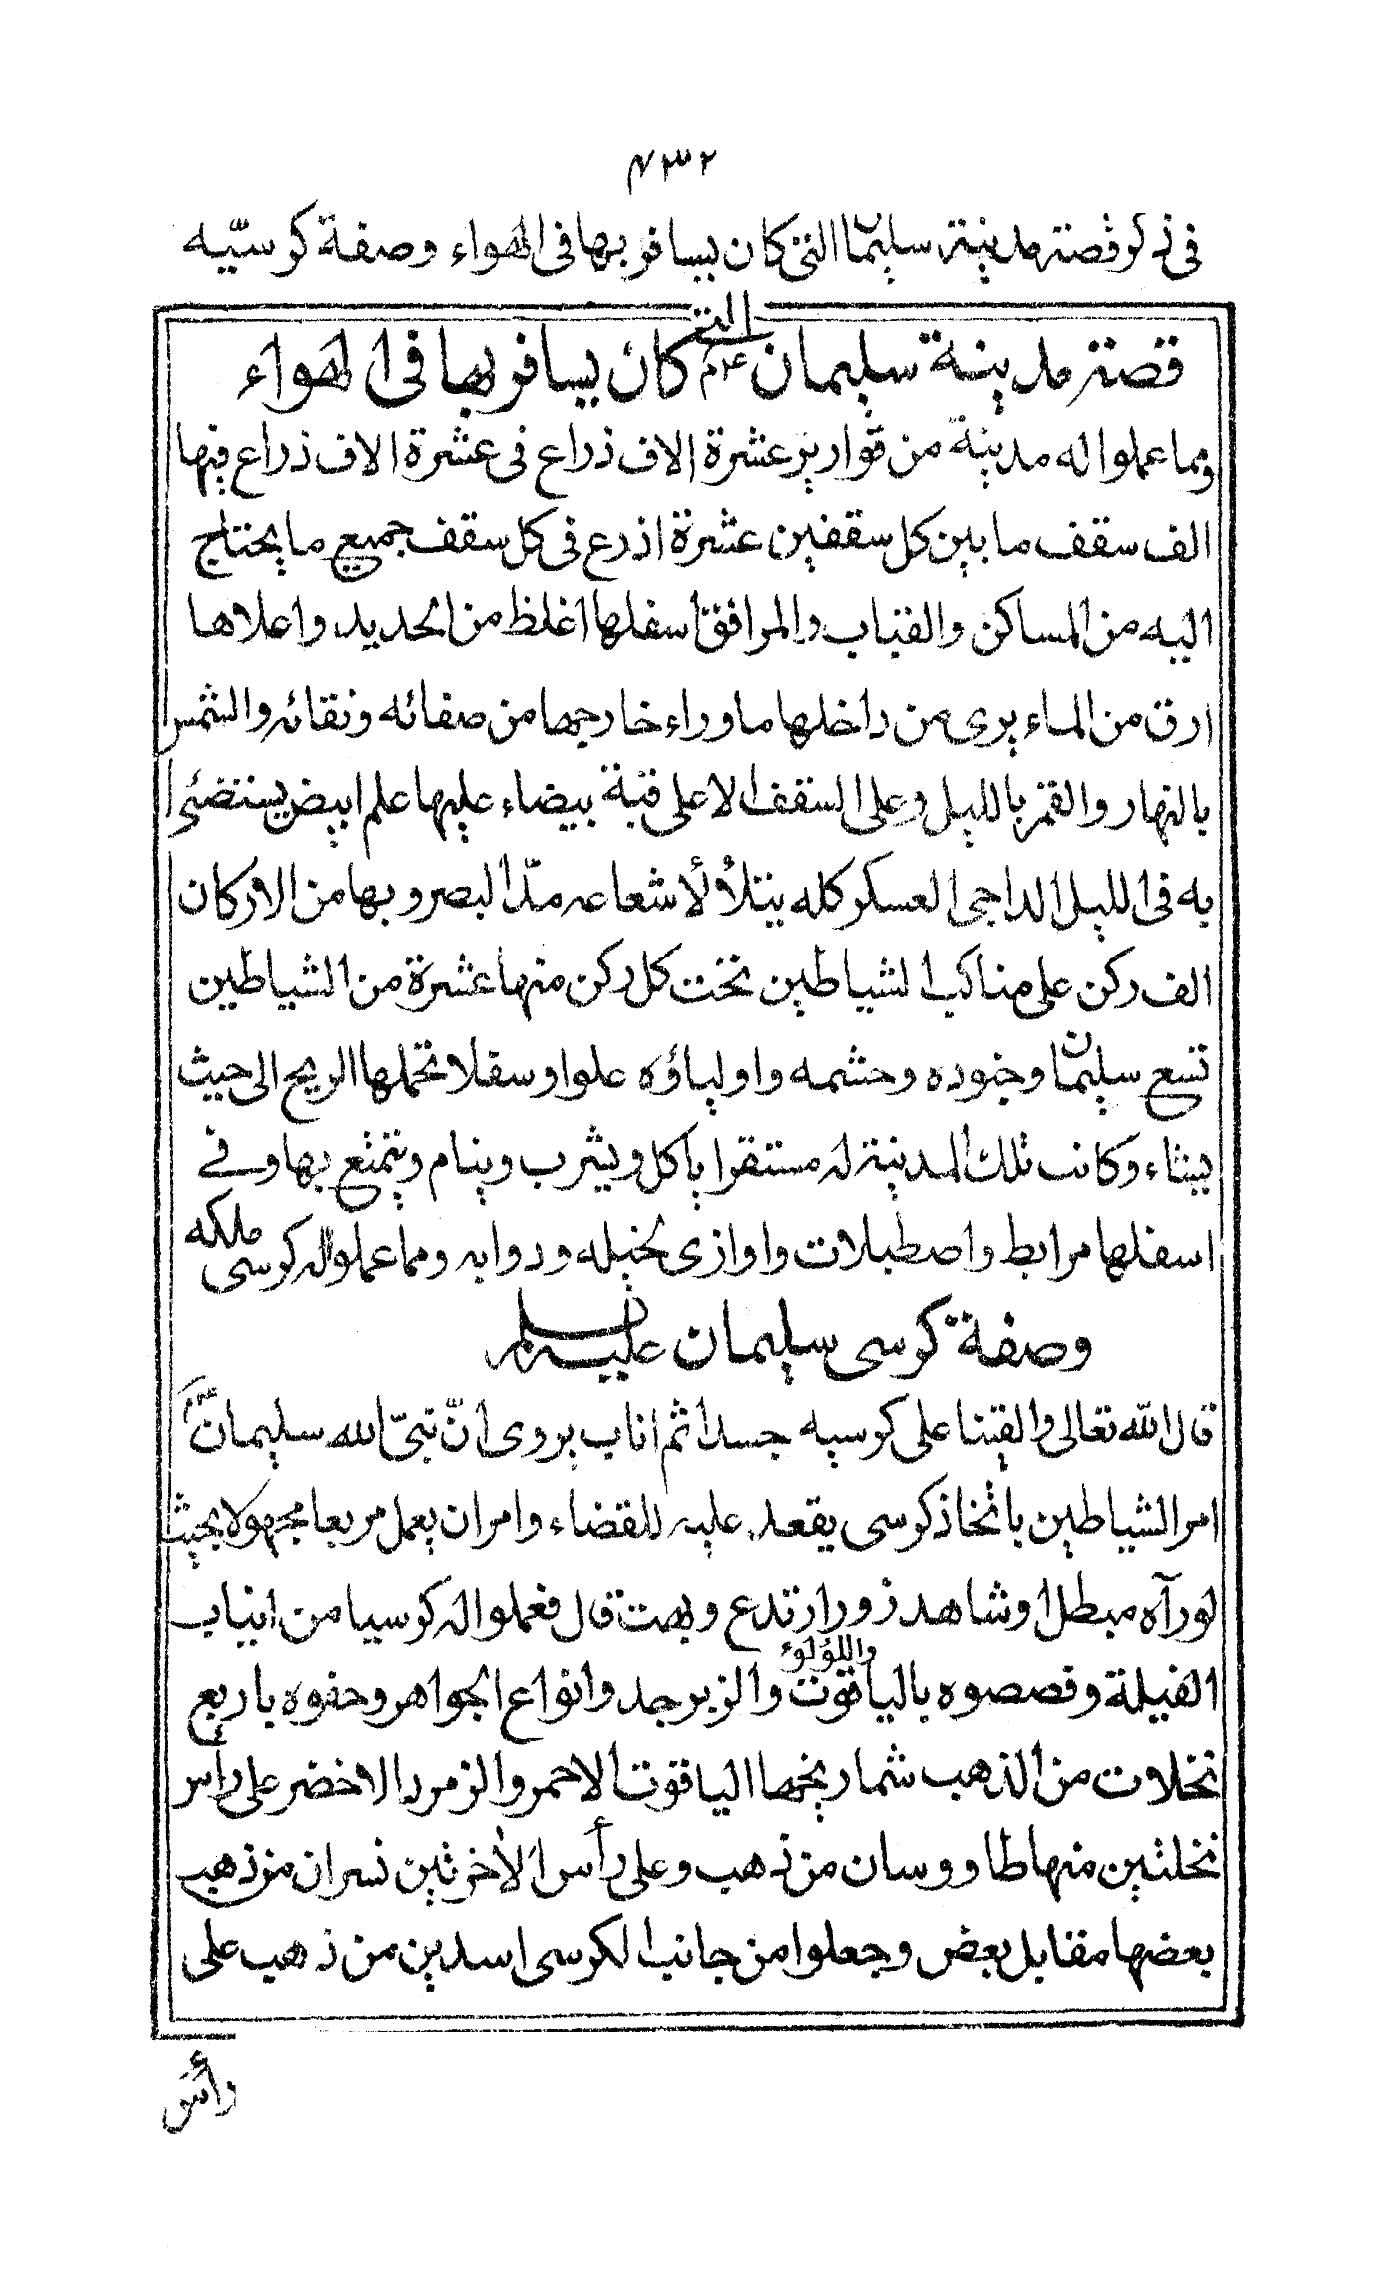 ٢٣٧م
فى ذكر قصة مدينة سليمان التى كان يسافر بها فى الهواء وصفة كرسيّه
قصة مدينة سليمان عم التى كان يسافر بها فى الهواء
ومما عملوا له مدينة من قوارير عشرة الاف ذراع فى عشرة الاف ذراع فيها
الف سقف ما بين كل سقفين عشرة اذرع فى كل سقف جميع ما يحتاج
اليه من المساكن والقباب والمرافق اسفلها اغلظ من الحديد واعلاها
ارق من الماء يرى من داخلها ما وراء خارجها من صفائه ونقائه والشمس
بالنهار والقمر بالليل وعلى السقف الاعلى قبة بيضاء عليها علم ابيض يستضئ
به فى الليل الداجى العسكر كله يتلأولأ شعاعه مدّ البصر وبها من الاركان
الف ركن على مناكب الشياطين تحت كل ركن منها عشرة من الشياطين
تسع سليمان وجنوده وحشمه واولياؤه علوا وسفلا تحملها الريح الى حيث
يشاء وكانت تلك المدينة له مستقرا ياكل ويشرب وينام ويتمتع بها وفى
اسفلها مرابط واصطبلات واوازى لخيله ودوابه ومما عملوا له كرسى ملكه
وصفة كرسى سليمان عليه السلم
قال الله تعالى والقينا على كرسيه جسدا ثم اناب يروى انّ نبىّ الله سليمان عم
امر الشياطين باتخاذ كرسى يقعد عليه للقضاء وامر ان يعمل مربعا مجهولا بحيث
لو رآه مبطل او شاهد زور ارتدع وبهت قال فعملوا له كرسيا من انياب
الفيلة وفصصوه بالياقوت واللؤلوء والزبرجد وانواع الجواهر وحفوه باربع
نخلات من الذهب شماريخها الياقوت الاحمر والزمرد الاخضر على رأس
نخلتين منها طاووسان من ذهب وعلى رأس الأخرتين نسران من ذهب
بعضها مقابل بعض وجعلوا من جانب الكرسى اسدين من ذهب على
رأس